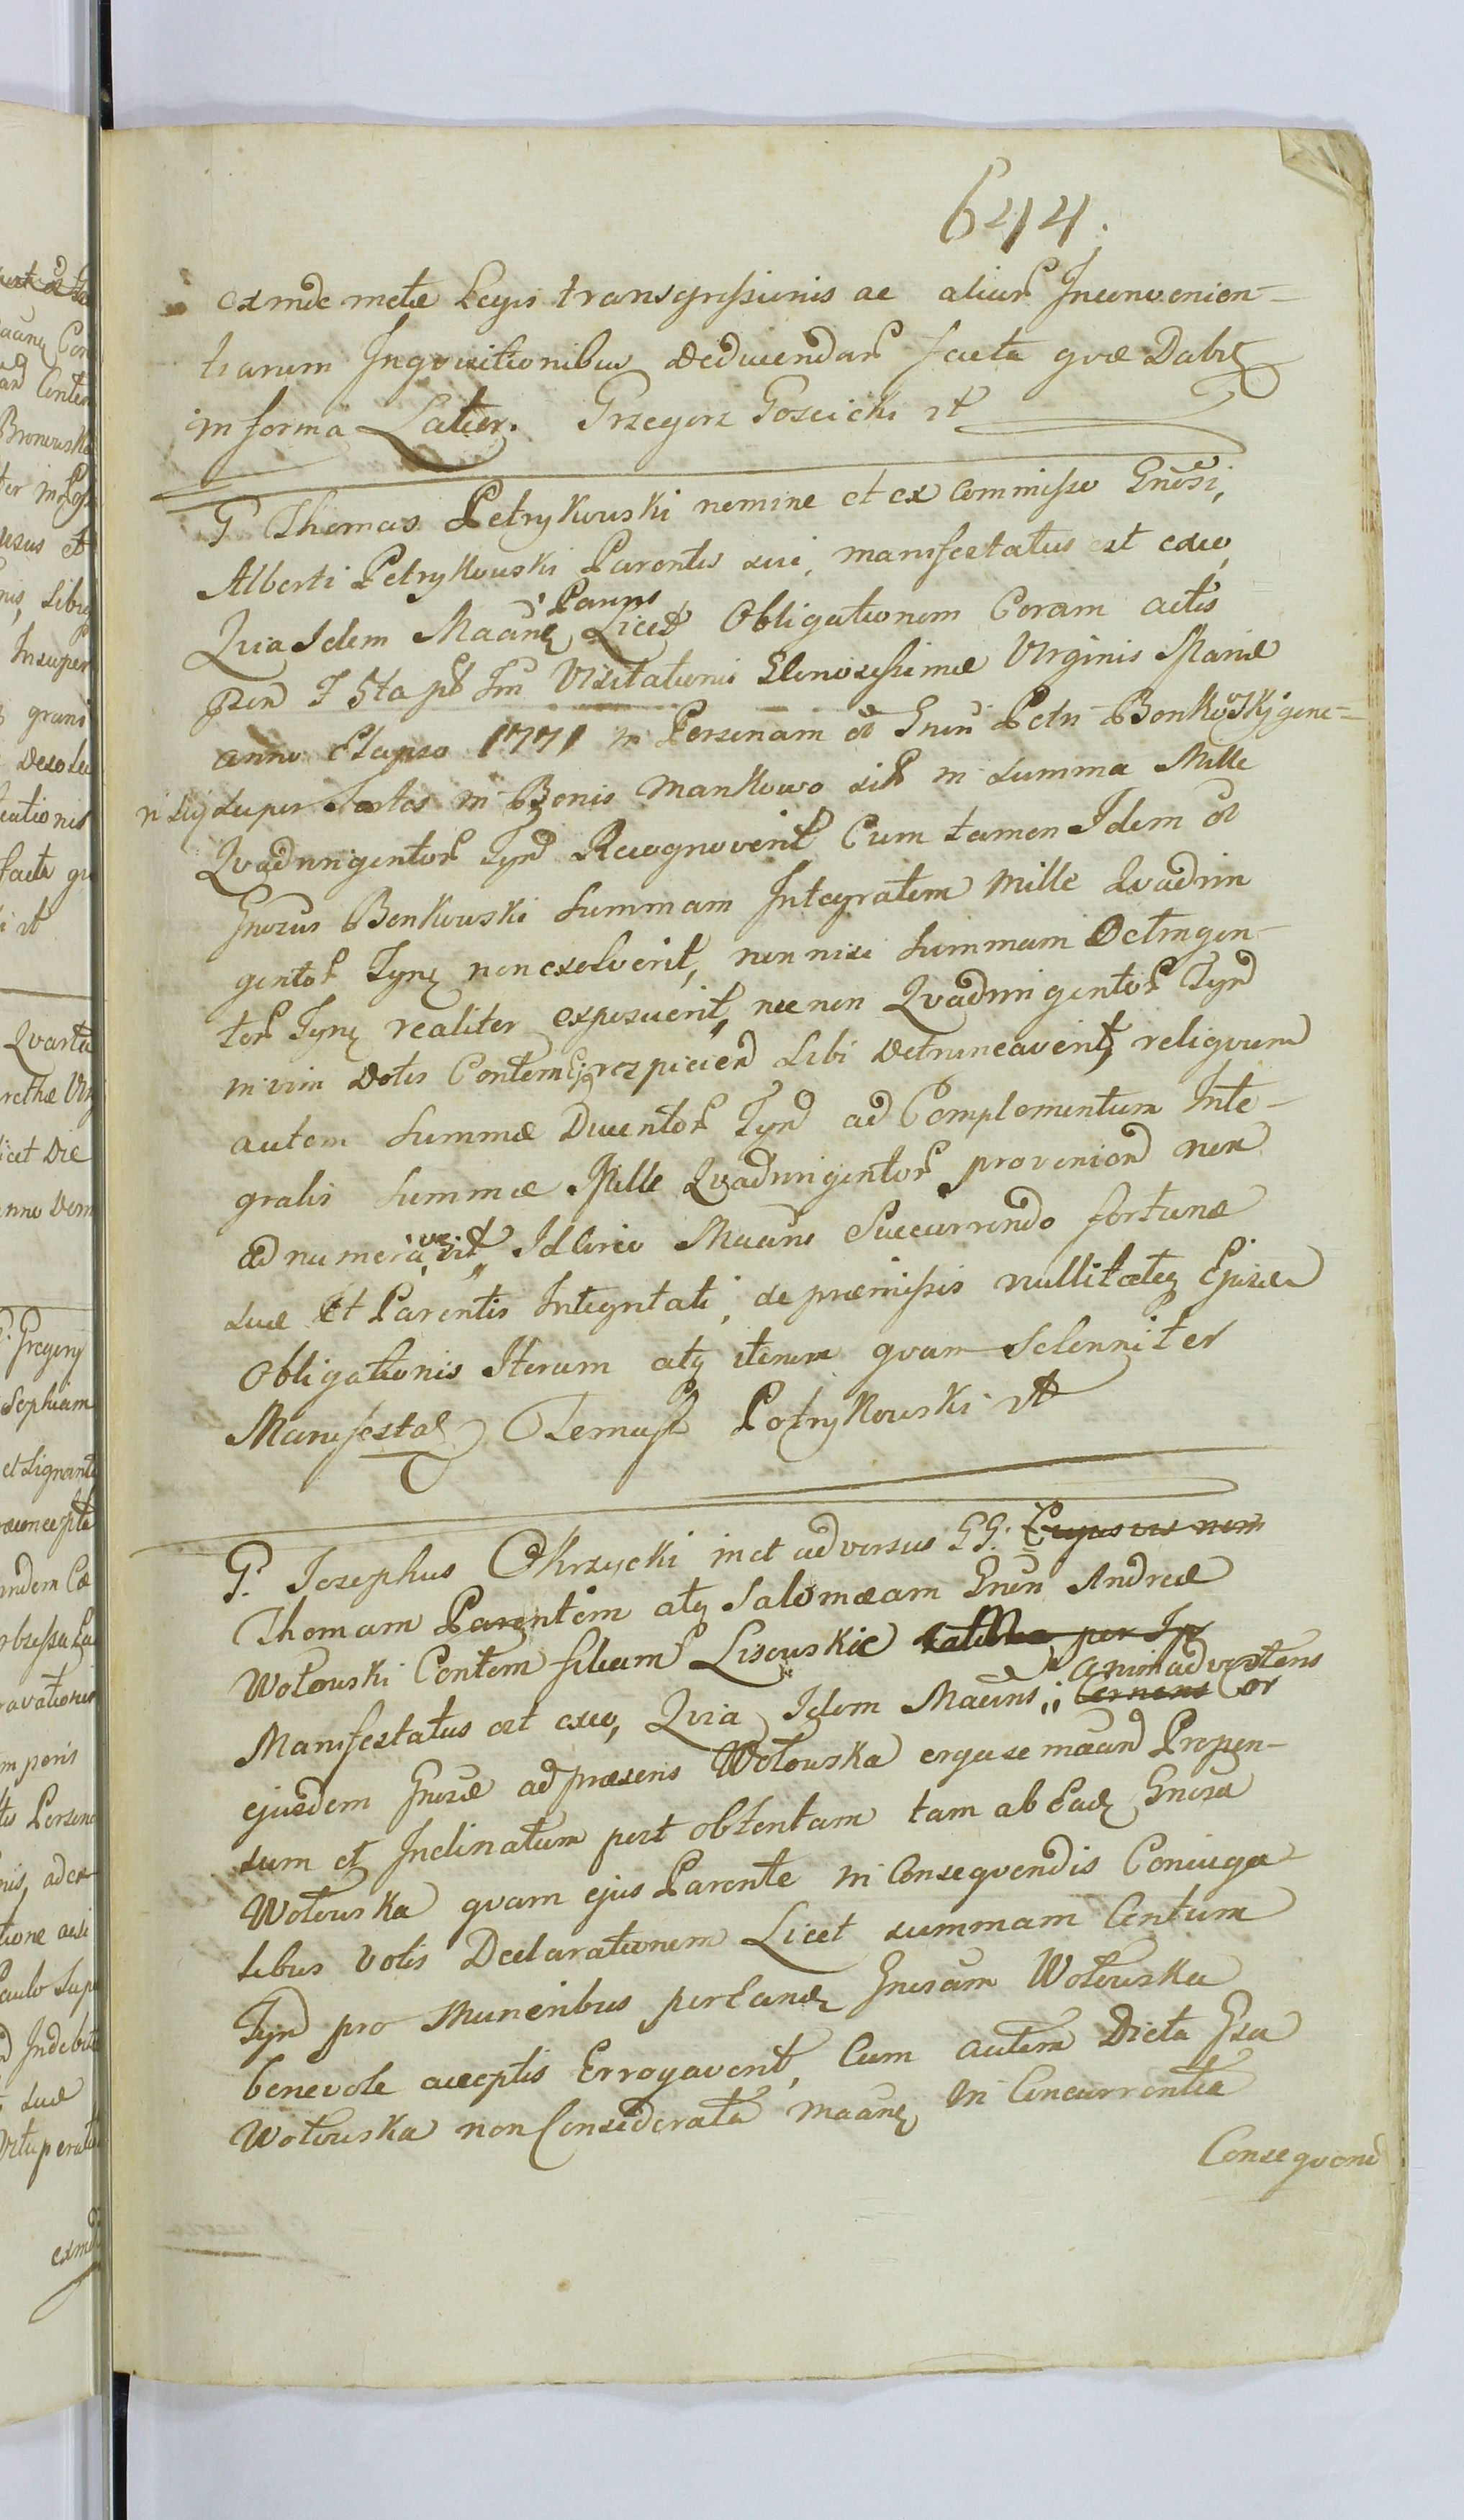 644.
exinde metæ Legis transgressionis ac aliar Inconvenien-
tiarum Inqvisitionibus deducendar facta qvæ Dabit
in forma Latior. Grzegorz Goscicki rt
G Thomas Petrykowski nomine et ex Commisso Gnosi,
Alberti Petrykowski Parentis sui, manifestatus est exeo,
Qvia Idem Maanz Parens Licet Obligationem Coram actis
pren F 5ta pt Fm Visitationis Glorosissimæ Virginis Mariæ
anno Elapso 1771 in Personam olt Gnin Petri Bonkowskj gene-
ri sui super Sortes in Bonis Mankowo sit in summa Mille
Qvadringentor Tynf Recognoverit Cum tamen Idem olt
Gnosus Bonkowski Summam Integralem Mille Qvadrin
gentor Tynf non exolverit, non nisi Summam Octingen-
tor Tynf realiter exposuerit, nec non Qvadringentor Tynf
in vim Dotis Contem Ejus respicien Sibi Detruncaverit, reliqvum
autem Summæ Ducentor Tynf ad Complementum Inte-
gralis Summæ Mille Qvadringentor provenien non
adnumeraverit, Idcirco Maans Succurrendo fortunæ
suæ Et Parentis Integritati, de præmissis nullitateq Ejusdem
Obligationis Iterum atq iterum qvam Solenniter
Manifestat Tomasz Petrykowski rt
G. Josephus Okrzycki in et adversus GG. Cujus vis nom
Thomam Parentem atq Salomæam Gnsin Andreæ
Wołowski Contem filiam Lisowskie per
Manifestatus est exeo, Qvia Idem Maans animadvertens Cernens Cor
ejusdem Gnosæ ad præsens Wołowska erga se maand Propen-
sum et Inclinatum post obtentam tam ab Eadz Gnosa
Wołowska qvam ejus Parente in Conseqvendis Coniuga-
libus Votis Declarationem Licet summam Centum
Tynf pro Muneribus per Eandz Gnosam Wołowska
benevole acceptis Errogaverit, Cum autem Dicta Gsa
Wołowska non Considerata maanz in Concurrentia
Conseqvend